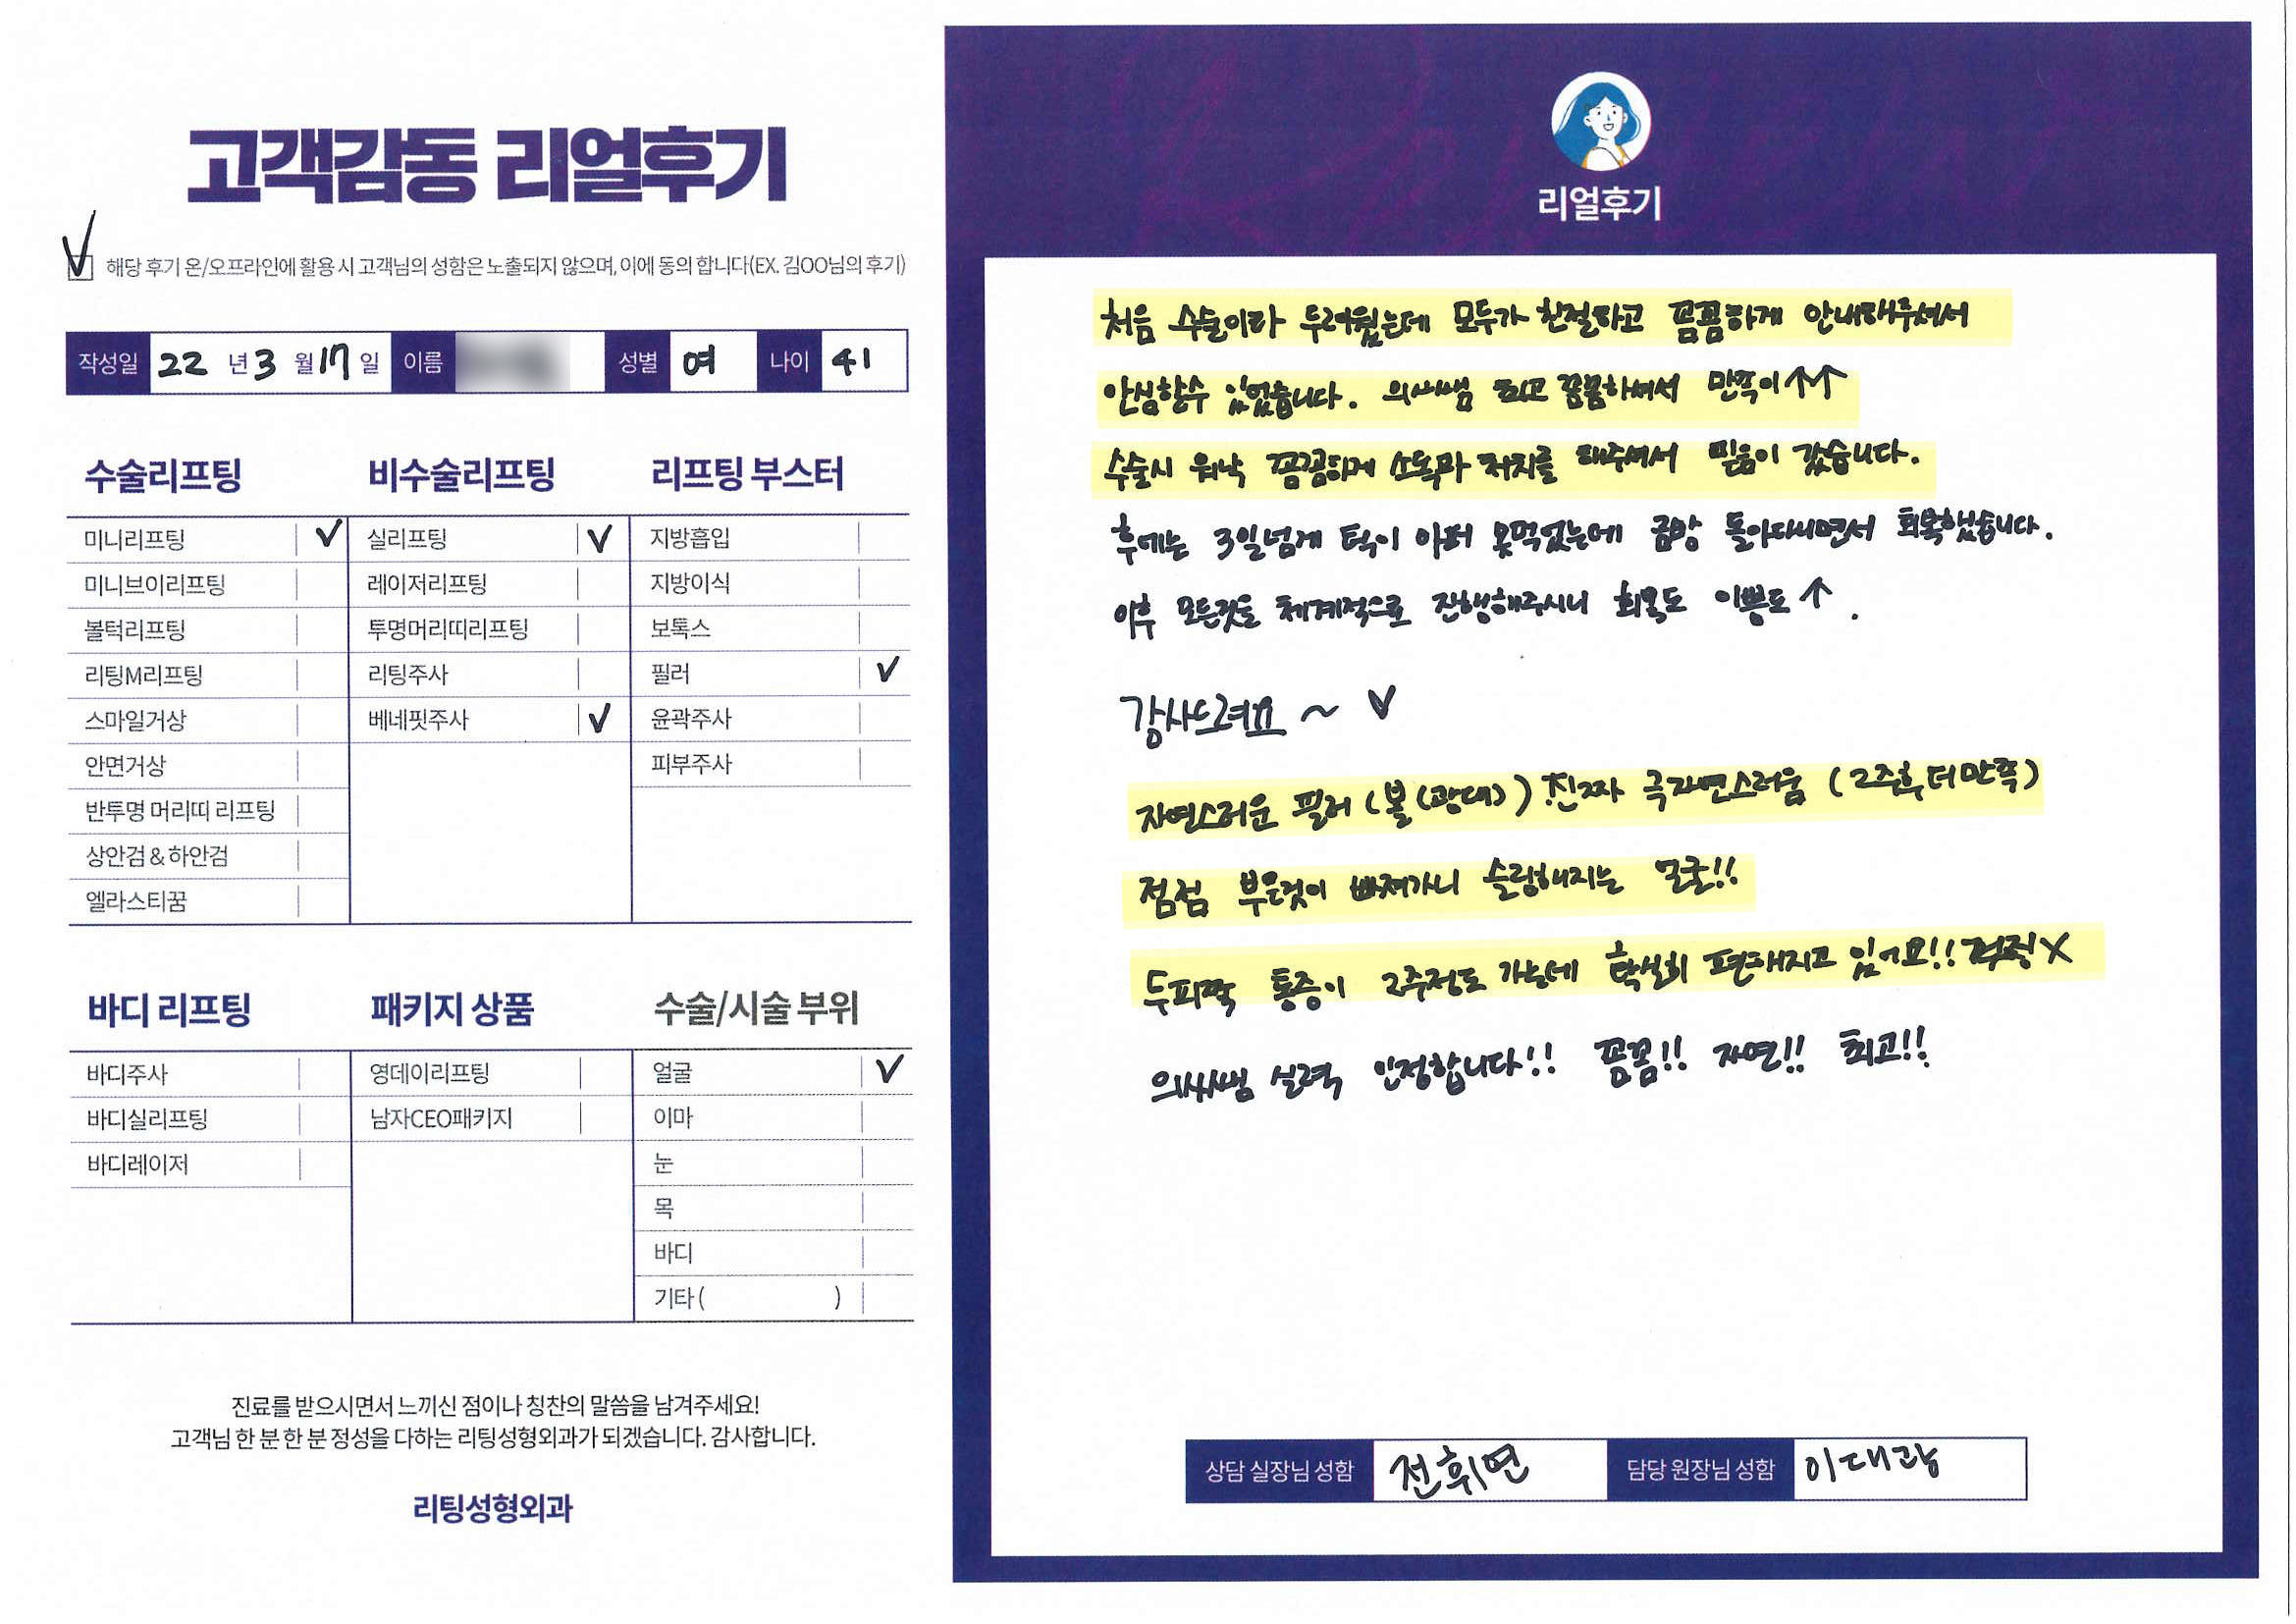 고객감동 리얼후기
해당 후기 온/오프라인에 활용 시 고객님의 성함은 노출되지 않으며, 이에 동의 합니다(EX. 김OO님의 후기)
작성일 22 년 3 월 17 일 이름 성별 여 나이 41
수술리프팅
미니리프팅 ✓
미니브이리프팅
볼턱리프팅
리팅M리프팅
스마일거상
안면거상
반투명 머리띠 리프팅
상안검 & 하안검
엘라스티꿈
비수술리프팅
실리프팅 ✓
레이저리프팅
투명머리띠리프팅
리팅주사
베네핏주사 ✓
리프팅 부스터
지방흡입
지방이식
보톡스
필러 ✓
윤곽주사
피부주사
바디 리프팅
바디주사
바디실리프팅
바디레이저
패키지 상품
영데이리프팅
남자CEO패키지
수술/시술 부위
얼굴 ✓
이마
눈
목
바디
기타 ( )
진료를 받으시면서 느끼신 점이나 칭찬의 말씀을 남겨주세요!
고객님 한 분 한 분 정성을 다하는 리팅성형외과가 되겠습니다. 감사합니다.
리팅성형외과
리얼후기
처음 수술이라 두려웠는데 모두가 친절하고 꼼꼼하게 안내해주셔서
안심할수 있었습니다. 의사쌤 최고 꼼꼼하셔서 만족이↑↑
수술시 워낙 꼼꼼하게 소독과 처치를 해주셔서 믿음이 갔습니다.
후에는 3일넘게 턱이 아퍼 못먹었는데 금방 돌아다니면서 회복했습니다.
이후 모든것을 체계적으로 진행해주시니 회복도 이쁨도 ↑.
감사드려요 ~ ♥
자연스러운 필러 (볼(광대)) 진짜 극자연스러움 (2주후 더만족)
점점 부은것이 빠져가니 슬림해지는 얼굴!!
두피쪽 통증이 2주정도 가는데 확실히 편해지고 있어요!! 걱정X
의사쌤 실력 인정합니다!! 꼼꼼!! 자연!! 최고!!
상담 실장님 성함 전휘연 담당 원장님 성함 이대광